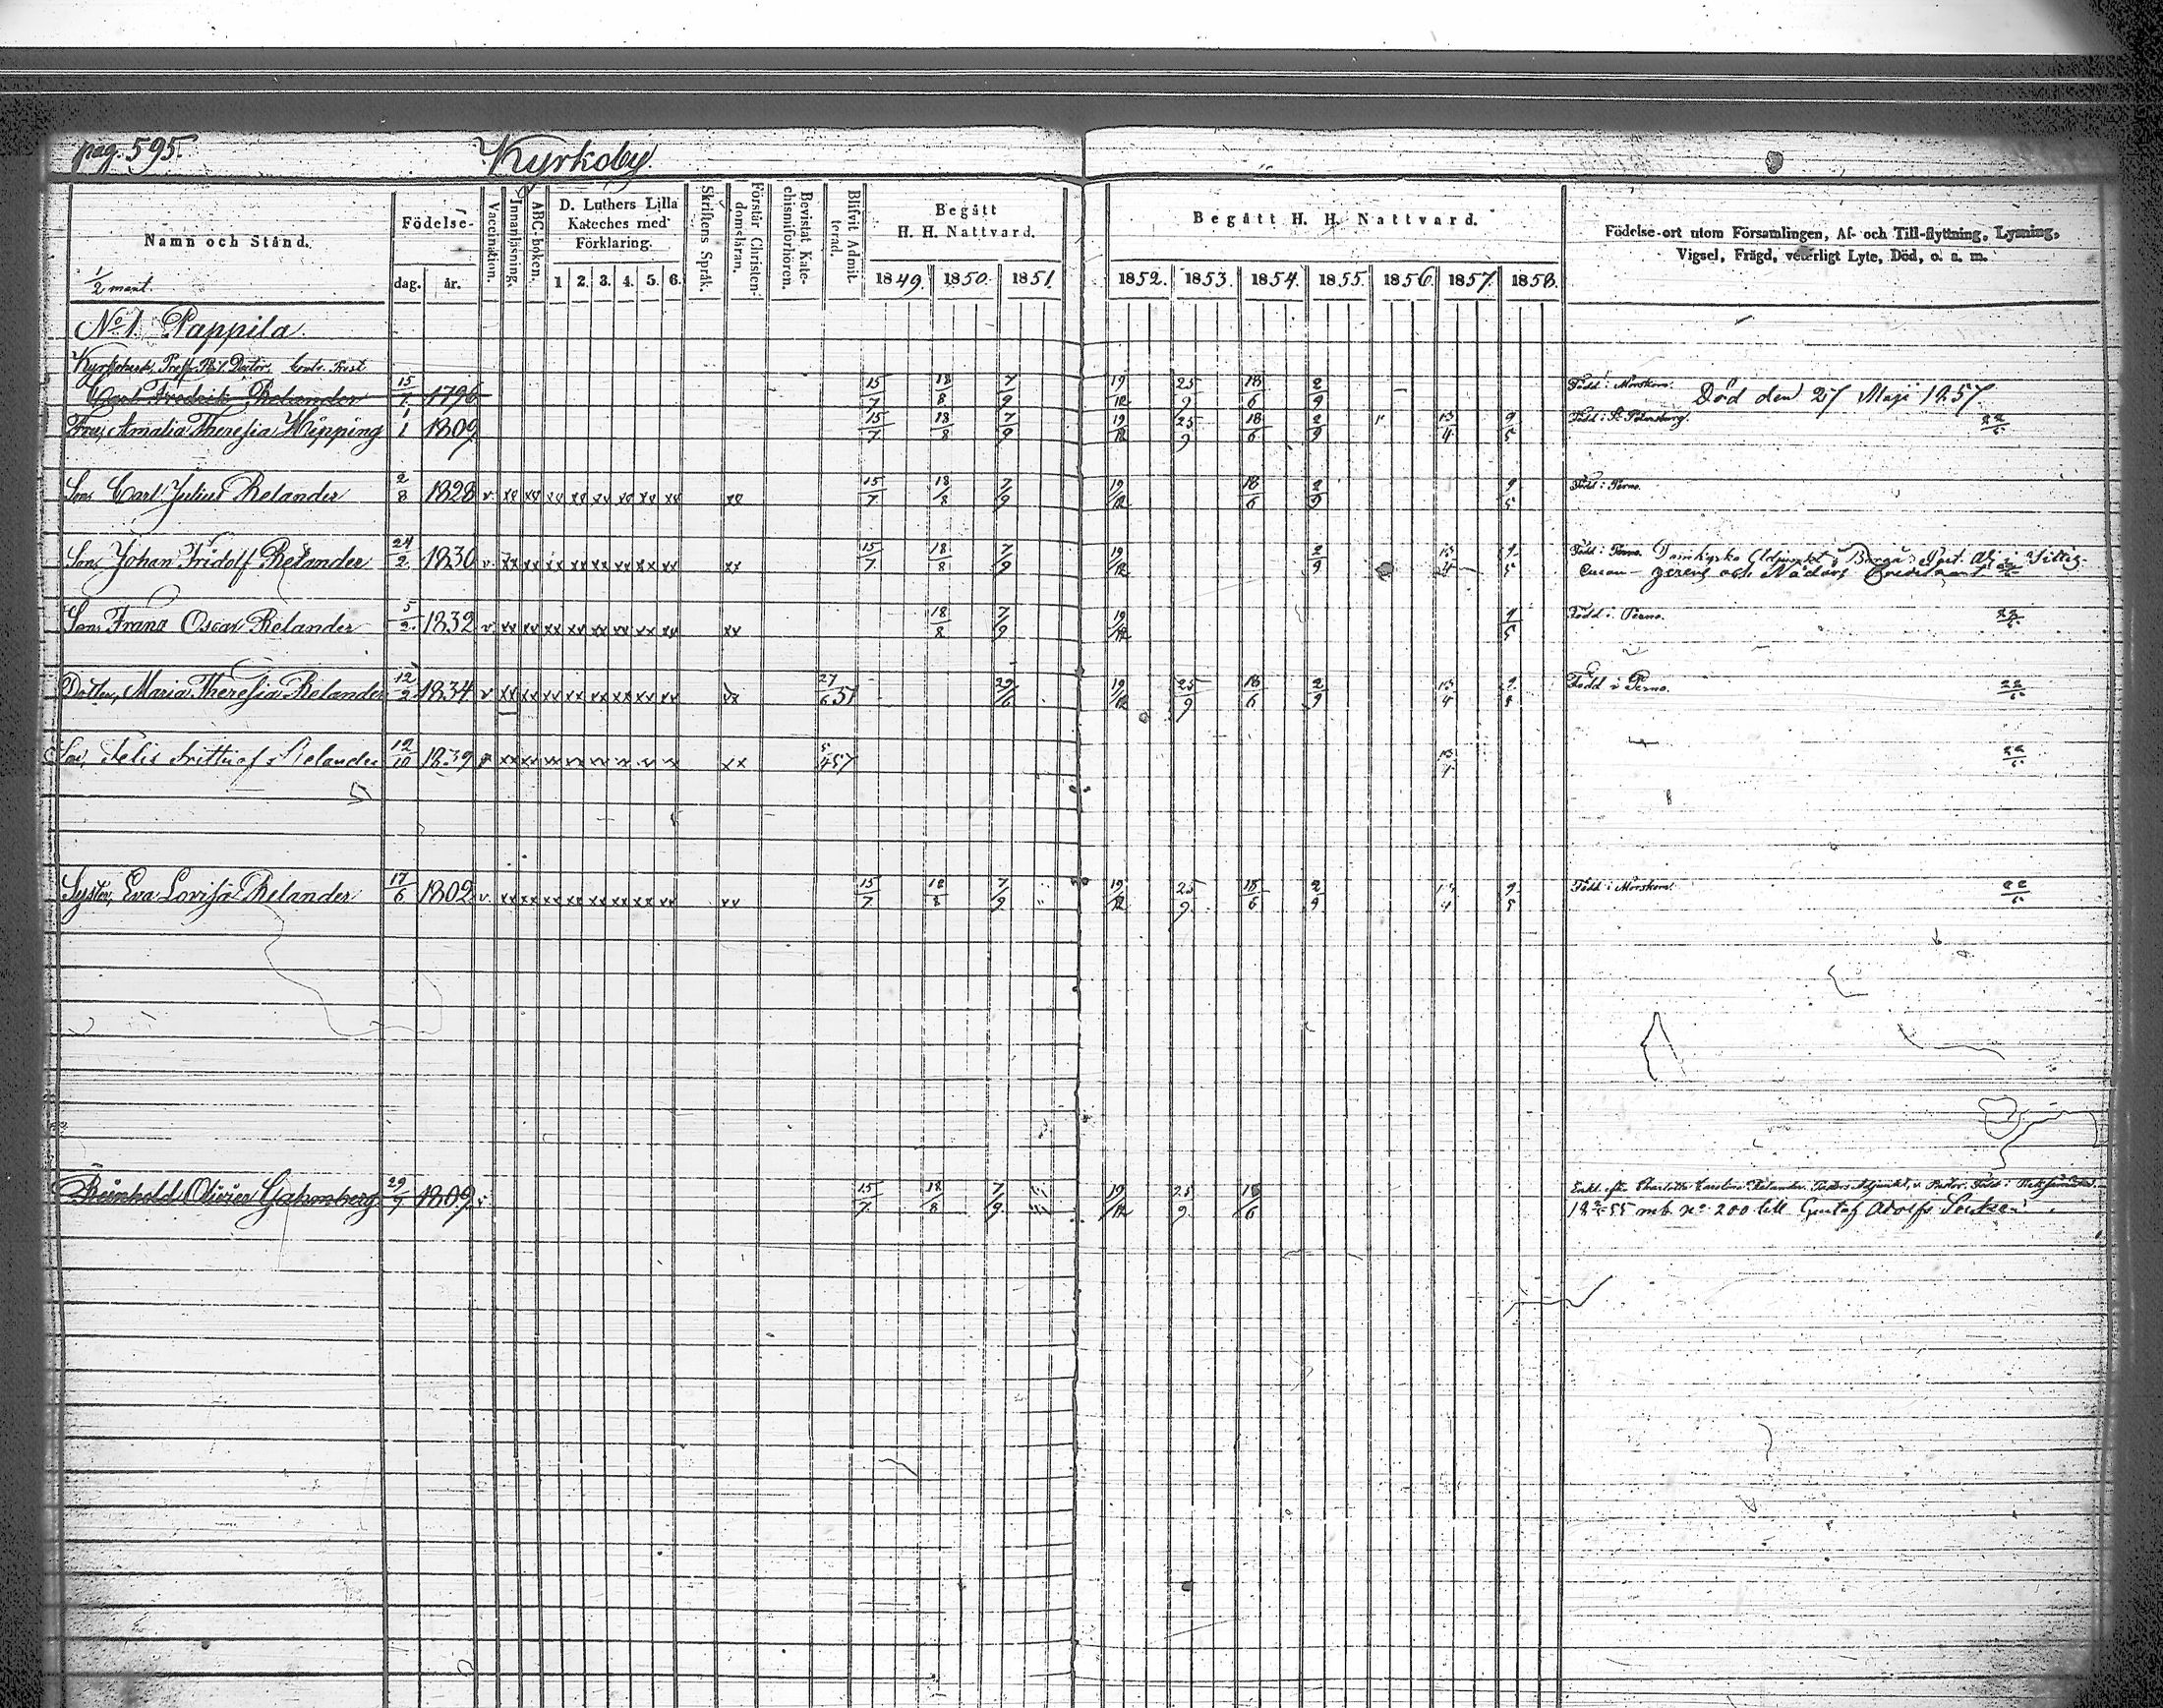 pag. 595.
Kyrkoby.
Namn och Stånd.
1/2 mant.
Födelse-
dag. år.
Vaccination.
Innanläsning.
ABC-boken.
D. Luthers Lilla
Kateches med
Förklaring.
1 2. 3. 4. 5. 6.
Skriftens Språk.
Förstår Christen-
domsläran.
Bevistat Kate-
chismiförhören.
Blifvit Admit-
terad.
Begått
H. H. Nattvard.
1849. 1850. 1851.
Begått H. H. Nattvard.
1852. 1853. 1854. 1855. 1856. 1857. 1858.
Födelse-ort utom Församlingen, Af- och Till-flyttning, Lysning,
Vigsel, Frägd, veterligt Lyte, Död, o. s. m.
No 1 Pappila
Kyrkoherd. Phil. Doctor
Carl Fredrik Relander 15/7 1796 15/7 18/8 7/9 19/12 25/9 18/6 2/9 Född i Mörskom. Död den 27 Maji 1857
Fru, Amalia Theresia Hipping 1/1 1809 15/7 18/8 7/9 19/12 25/9 18/6 2/9 13/4 9/5 Född i St Petersburg.
Son Carl Julius Relander 2/8 1828 v xx xx xx xx xx xx xx xx xx 15/7 18/8 7/9 19/12 18/6 2/9 9/5 Född i Perno.
Son Johan Fridolf Relander 24/2 1830 v xx xx xx xx xx xx xx xx 15/7 18/8 7/9 19/12 2/9 13/4 9/5 Född i Perno. Domkyrko Adjunkt i Borgå
Son Frans Oscar Relander 5/2 1832 v xx xx xx xx xx xx xx xx xx 18/8 7/9 19/12 9/5 Född i Perno. 22/5
Dotter, Maria Theresia Relander 12/2 1834 v xx xx xx xx xx xx xx xx xx 29/6 19/12 25/9 18/6 2/9 13/4 9/5 Född i Perno. 22/5
Son, Felix Frithiof Relander 12/10 1839 xx xx xx xx xx xx xx xx xx 5/4 57 13/4 22/5
Syster, Eva Lovisa Relander 17/6 1802 v xx xx xx xx xx xx xx xx xx 15/7 18/8 7/9 19/12 25/9 18/6 2/9 13/4 9/5 Född i Mörskom. 22/5
Reinhold Olivier 29/9 1809 15/7 18/8 7/9 19/12 25/9 18/6 Enkl. efter Charlotta Carolina Relander
55 mb no 200 till Gustaf Adolfs Socken